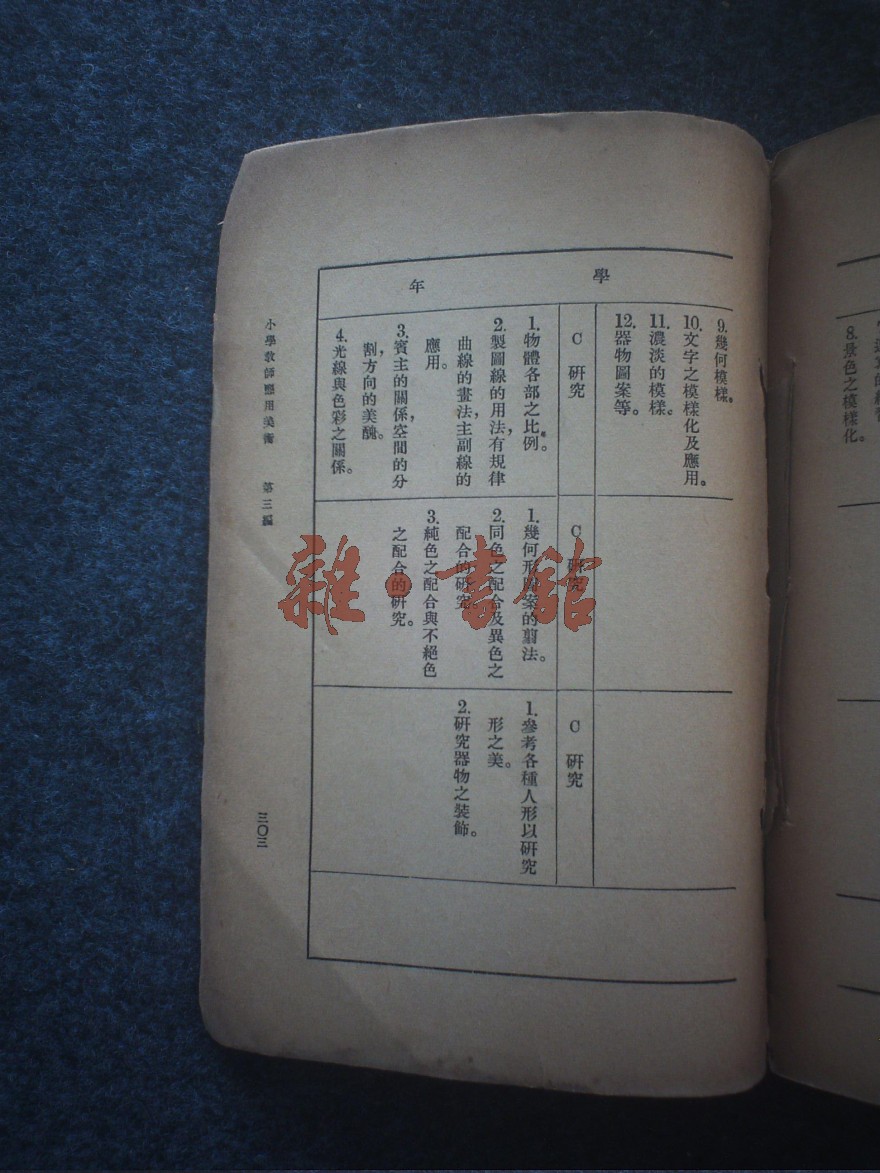 學
年
9. 幾何模樣。
10. 文字之模樣化及應用。
11. 濃淡的模樣。
12. 器物圖案等。
C 研究
1. 物體各部之比例。
2. 製圖線的用法，有規律
曲線的畫法，主副線的
應用。
3. 賓主的關係，空間的分
割，方向的美醜。
4. 光線與色彩之關係。
C 研究
1. 幾何形圖案的剪法。
2. 同色之配合及異色之
配合的研究。
3. 純色之配合與不絕色
之配合的研究。
C 研究
1. 參考各種人形以研究
形之美。
2. 研究器物之裝飾。
小學教師應用美術 第三編
三〇三
8. 景色之模樣化。
雜·書館